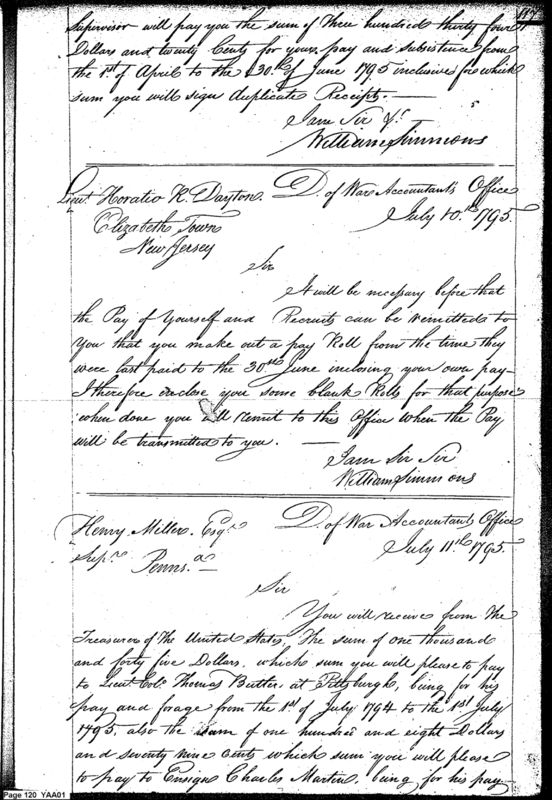 119
Supervisor will pay you the sum of Three hundred thirty four
Dollars and twenty Cents for your pay and subsistence from
the 1st of April to the 30th of June 1795 inclusive for which
sum you will sign duplicate Receipts.
I am Sir &c
William Simmons
Lieut. Horatio R. Dayton. D. of War Accountant's Office
Elizabeth Town July 10th 1795
New Jersey
Sir
It will be necessary before that
the Pay of Yourself and Recruits can be remitted to
You that you make out a pay Roll from the time they
were last paid to the 30th June inclosing your own pay
I therefore enclose you some blank Rolls for that purpose
when done you will remit to this Office when the Pay
will be transmitted to you.
I am Sir Sir
William Simmons
Henry Miller. Esqr. D. of War Accountants Office
Supr. Penns.a July 11th 1795.
Sir
You will receive from The
Treasurer of The United States, The sum of one thousand
and forty five Dollars, which sum you will please to pay
to Lieut. Col. Thomas Butler, at Pittsburgh, being for his
pay and forage from the 1st of July 1794 to the 1st July
1795, also the sum of one hundred and eight Dollars
and seventy nine Cents which sum you will please
to pay to Ensign Charles Martin, being for his pay
Page 120 YAA01